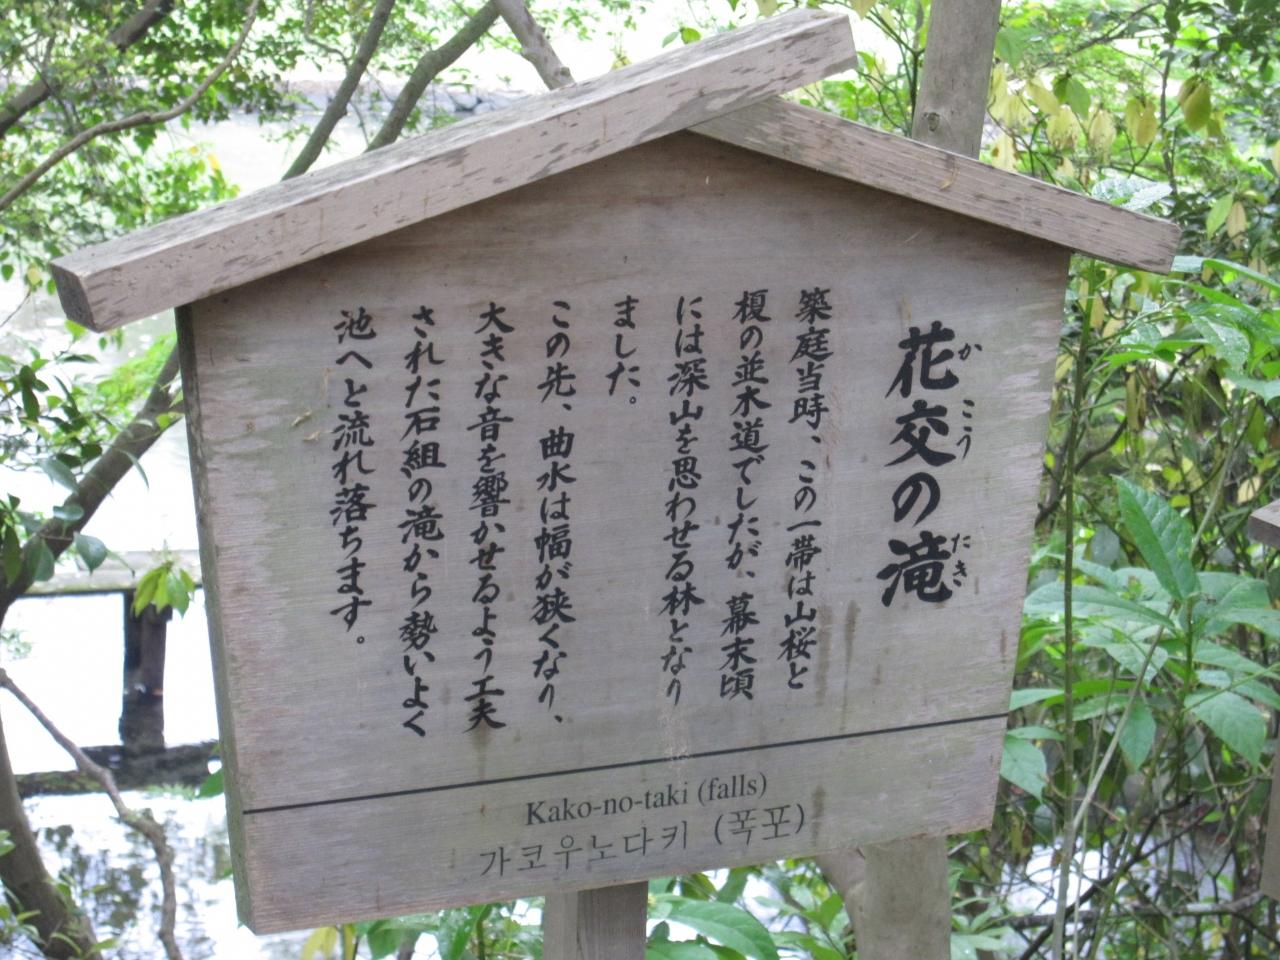 花交の滝
かこうたき
築庭当時、この一帯は山桜と
榎の並木道でしたが、幕末頃
には深山を思わせる林となり
ました。
この先、曲水は幅が狭くなり、
大きな音を響かせるよう工夫
された石組の滝から勢いよく
池へと流れ落ちます。
Kako-no-taki (falls)
가코우노다키 (폭포)